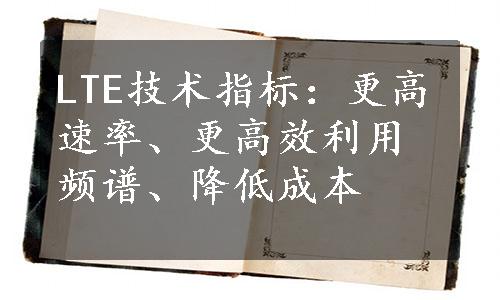 LTE技术指标：更高
速率、更高效利用
频谱、降低成本